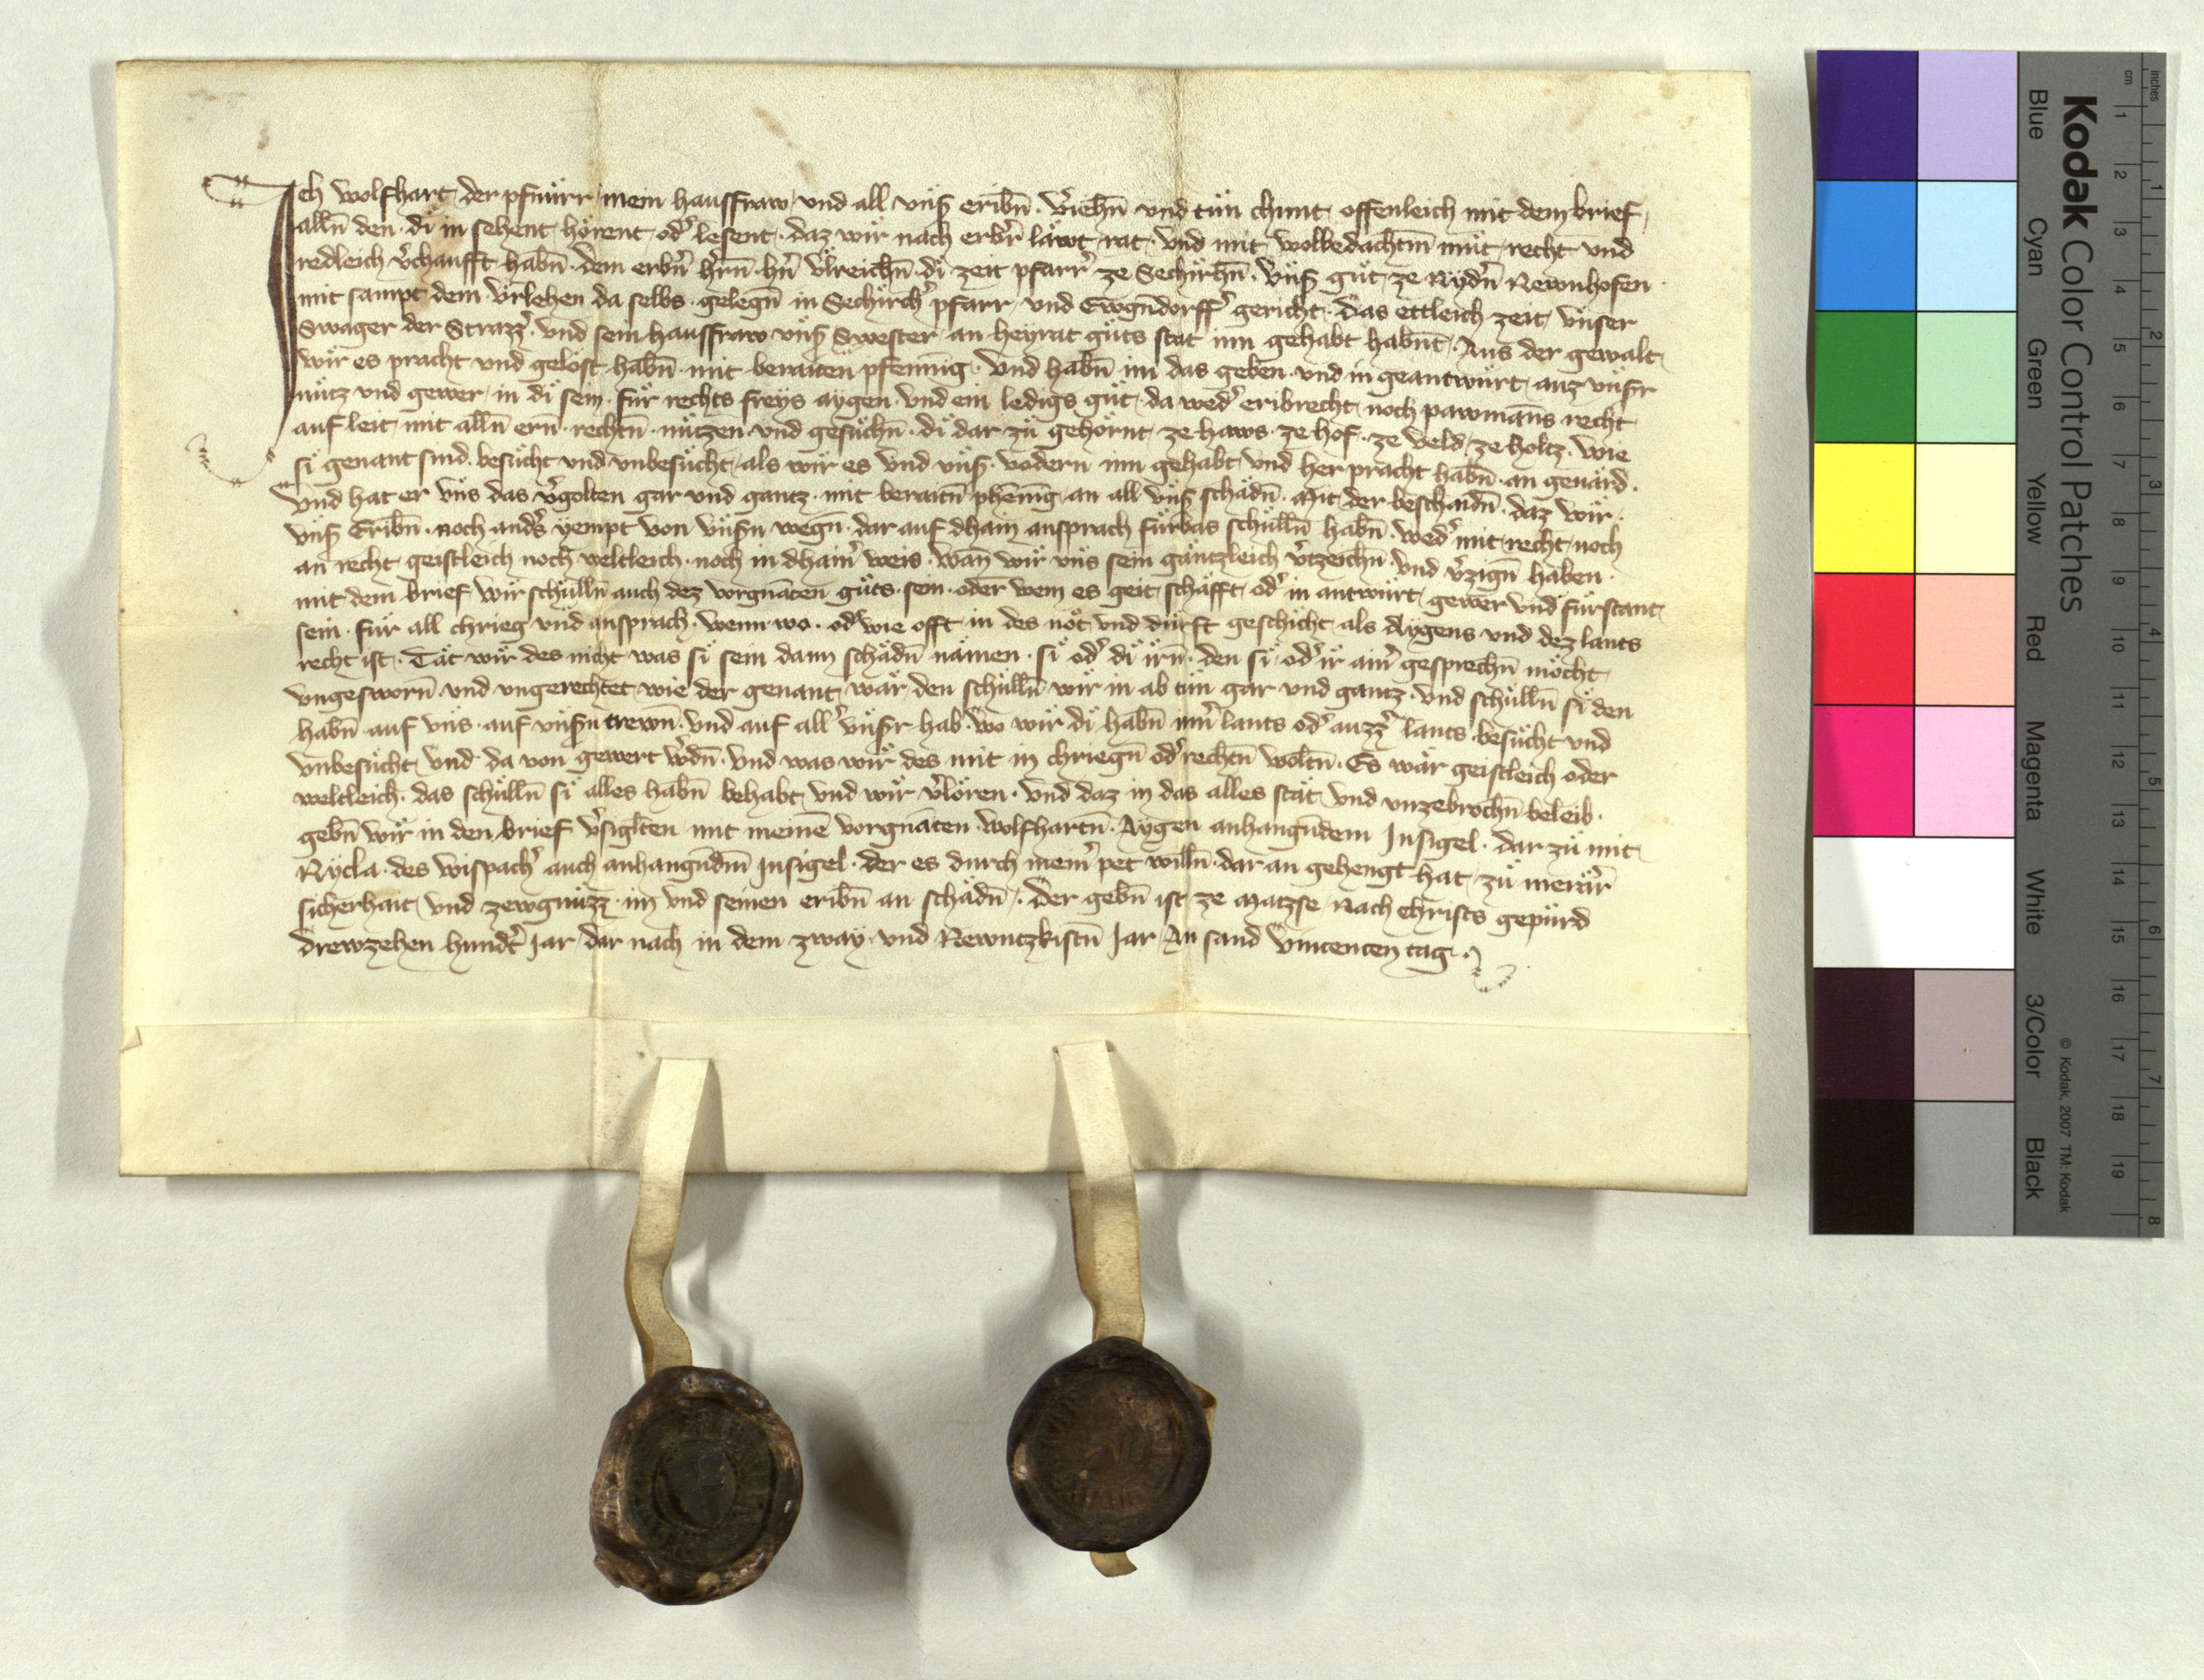 Ich wolfhart der pfnürr mein hausfraw und all vnß eribn̄ v̓iehn̄ und tůn chunt offenleich mit dem brief
alln̄ den di in sehent hörent od̓ lesent daz wir nach erbr̓ läwt rat und mit wolbedachtm̄ můt recht und
redleich v̓chaufft habn̄ dem erbn̓ hr̓n̄ hn̓ v̊lreichn̄ di zeit pfarr̓ ze Sechirhn̄ vnß gůt ze Nydn̓ Newnhofen
mit sampt dem vrlehen da selbs gelegn̄ in Sechirch̓ pfarr und Ewgn̄dorff̓ gericht Das ettleich zeit vnser
Swager der Strazz̓ und sein hausfraw vnß Swester an heyrat gůts stat inn gehabt habn̄t Aus der gewalt
wir es pracht und gelöst habn̄ mit beraiten pfenning und habn̄ im das geben und in geantwurt auz vnsr
nütz und gewer in di sein für rechts freys aygen und ein ledigs gůt da wed̓ eribrecht noch pawmans recht
auf leit mit alln̄ ern̄ rechtn̄ nützen und gesůchn̄ di dar zů gehörnt ze haws ze hof ze veld ze holtz wie
si genant sind besůcht und vnbesůcht als wir es und vnß vodern inn gehabt und her pracht habn̄ an genärd
und hat er vns das v̓golten gar und gantz mit beraitn̄ phēnīg an all vnß schädn̄ Mit der beschaidn̄ daz wir
vnß Eribn̄ noch and̓s yempt von vnßn wegn̄ dar auf dhain ansprach fürbas schülln̄ habn̄ wed̓ mit recht noch
an recht geistleich noch weltleich noch in dhain̓ weis wan̄ wir vns sein gäntzleich v̓tzeichn̄ und v̓zign̄ haben
mit dem brief wir schülln̄ auch dez vorgnāten gůts sein oder wem es geit schafft od̓ in antwurt gewer und fürstant
sein für all chrieg und ansprach wenn wo od̓ wie offt in des not und dürft geschicht als Aygens und dez lants
recht ist Tät wir des nicht was si sein dann schädn̄ nämen si od̓ di irn̄ den si od̓ ir ain̓ gesprechn̄ möcht
vngesworn̄ und vngerechtet wie der genant wär den schülln̄ wir in ab tůn gar und gantz und schülln̄ si den
habn̄ auf vns auf vnßn trewn̄ und auf all̓ vnßr hab wo wir di habn̄ inn̓ lants od̓ auzz̓ lants besůcht und
vnbesůcht und da von gewert w̓dn̄ und was wir des mit in chriegn̄ od̓ rechtn̄ woltn̄ Es wär geistleich oder
weltleich das schülln̄ si alles habn̄ behabt und wir v̓lören und daz in das alles stät und vnzebrochn̄ beleib
gebn̄ wir in den brief v̓siglten mit meinē vorgnāten wolfhartn̄ Aygen anhangn̄dem Insigel dar zů mit
Nycla des wispach̓ auch anhangn̄dm̄ Insigel der es durch mein̓ pet willn̄ dar an gehengt hat zů merär̓
sicherhait und zewgnüzz im und seinen eribn̄ an schädn̄ Der gebn̄ ist ze Matzse Nach Christs gepürd
drewzehen hund̓t Jar dar nach in dem zway und Newntzkistn̄ Jar An sand Vincencen tag
Kodak Color Control Patches
Blue Cyan Green Yellow Red Magenta White 3/Color Black
© Kodak, 2007 TM: Kodak
cm 1 2 3 4 5 6 7 8 9 10 11 12 13 14 15 16 17 18 19
inches 1 2 3 4 5 6 7 8